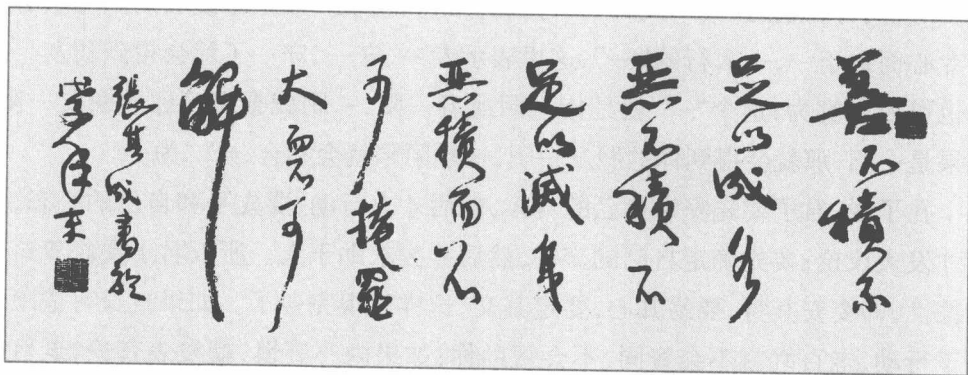 善不積不
足以成名
恶不積不
足以滅身
恶積而不
可掩罪
大而不可
解
張其成書於
年末